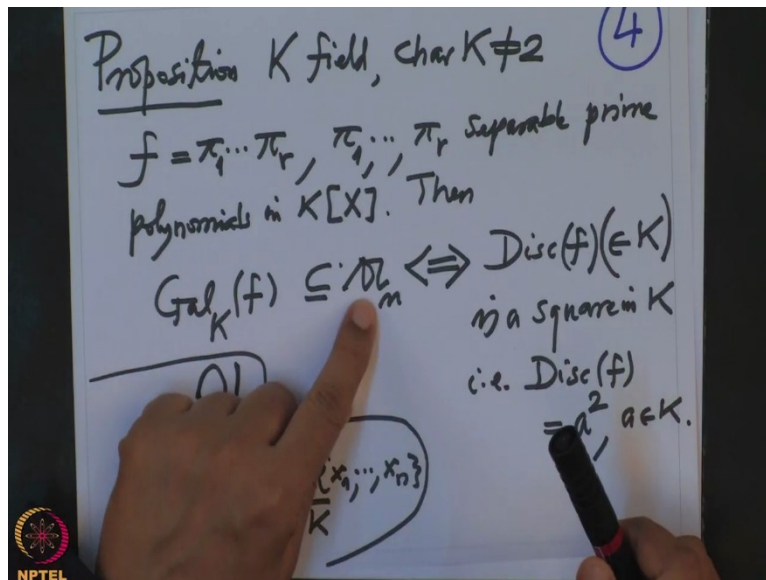 Proposition K field, char K ≠ 2
4
f = π₁⋯πᵣ, π₁,⋯, πᵣ separable prime
polynomials in K[X]. Then
Gal_K(f) ⊆ 𝔄ₙ ⟺ Disc(f)(∈ K)
is a square in K
i.e. Disc(f)
= a², a ∈ K.
x₁,⋯,xₙ}
K
NPTEL